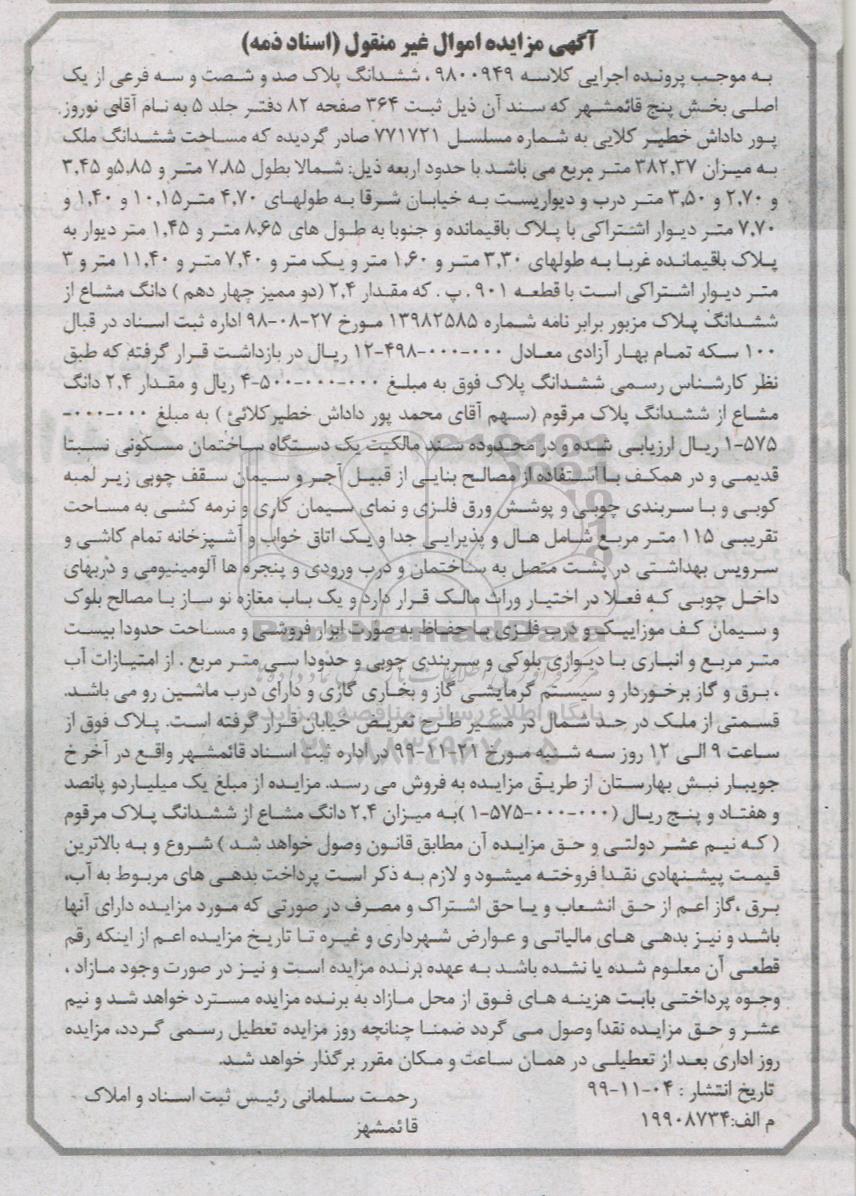 آگهی مزایده اموال غیر منقول (اسناد ذمه)
به موجب پرونده اجرایی کلاسه ۹۸۰۰۹۴۹ ، ششدانگ پلاک صد و شصت و سه فرعی از یک
اصلی بخش پنج قائمشهر که سند آن ذیل ثبت ۳۶۴ صفحه ۸۲ دفتر جلد ۵ به نام آقای نوروز
پور داداش خطیر کلایی به شماره مسلسل ۷۷۱۷۲۱ صادر گردیده که مساحت ششدانگ ملک
به میزان ۳۸۲,۳۷ متر مربع می باشد با حدود اربعه ذیل: شمالا بطول ۷,۸۵ متر و ۵,۸۵و ۳,۴۵
و ۲,۷۰ و ۳,۵۰ متر درب و دیواریست به خیابان شرقا به طولهای ۴,۷۰ متر۱۰,۱۵ و ۱,۴۰ و
۷,۷۰ متر دیوار اشتراکی با پلاک باقیمانده و جنوبا به طول های ۸,۶۵ متر و ۱,۴۵ متر دیوار به
پلاک باقیمانده غربا به طولهای ۳,۳۰ متر و ۱,۶۰ متر و یک متر و ۷,۴۰ متر و ۱۱,۴۰ متر و ۳
متر دیوار اشتراکی است با قطعه ۹۰۱ .پ . که مقدار ۲,۴ (دو ممیز چهار دهم ) دانگ مشاع از
ششدانگ پلاک مزبور برابر نامه شماره ۱۳۹۸۲۵۸۵ مورخ ۲۷-۰۸-۹۸ اداره ثبت اسناد در قبال
۱۰۰ سکه تمام بهار آزادی معادل ۰۰۰-۰۰۰-۴۹۸-۱۲ ریال در بازداشت قرار گرفته که طبق
نظر کارشناس رسمی ششدانگ پلاک فوق به مبلغ ۰۰۰-۰۰۰-۵۰۰-۴ ریال و مقدار ۲,۴ دانگ
مشاع از ششدانگ پلاک مرقوم (سهم آقای محمد پور داداش خطیرکلائی ) به مبلغ ۰۰۰-۰۰۰-
۵۷۵-۱ ریال ارزیابی شده و در محدوده سند مالکیت یک دستگاه ساختمان مسکونی نسبتا
قدیمی و در همکف با استفاده از مصالح بنایی از قبیل آجر و سیمان سقف چوبی زیر لمبه
کوبی و با سربندی چوبی و پوشش ورق فلزی و نمای سیمان کاری و نرمه کشی به مساحت
تقریبی ۱۱۵ متر مربع شامل هال و پذیرایی جدا و یک اتاق خواب و آشپزخانه تمام کاشی و
سرویس بهداشتی در پشت متصل به ساختمان و درب ورودی و پنجره ها آلومینیومی و دربهای
داخل چوبی که فعلا در اختیار وراث مالک قرار دارد و یک باب مغازه نو ساز با مصالح بلوک
و سیمان کف موزاییک و درب فلزی با حفاظ به صورت ابزار فروشی و مساحت حدودا بیست
متر مربع و انباری با دیواری بلوکی و سربندی چوبی و حدودا سی متر مربع . از امتیازات آب
، برق و گاز برخوردار و سیستم گرمایشی گاز و بخاری گازی و دارای درب ماشین رو می باشد.
قسمتی از ملک در حد شمال در مسیر طرح تعریض خیابان قرار گرفته است. پلاک فوق از
ساعت ۹ الی ۱۲ روز سه شنبه مورخ ۲۱-۱۱-۹۹ در اداره ثبت اسناد قائمشهر واقع در آخر خ
جویبار نبش بهارستان از طریق مزایده به فروش می رسد. مزایده از مبلغ یک میلیاردو پانصد
و هفتاد و پنج ریال (۰۰۰-۰۰۰-۵۷۵-۱ )به میزان ۲,۴ دانگ مشاع از ششدانگ پلاک مرقوم
( که نیم عشر دولتی و حق مزایده آن مطابق قانون وصول خواهد شد ) شروع و به بالاترین
قیمت پیشنهادی نقدا فروخته میشود و لازم به ذکر است پرداخت بدهی های مربوط به آب،
برق ،گاز اعم از حق انشعاب و یا حق اشتراک و مصرف در صورتی که مورد مزایده دارای آنها
باشد و نیز بدهی های مالیاتی و عوارض شهرداری و غیره تا تاریخ مزایده اعم از اینکه رقم
قطعی آن معلوم شده یا نشده باشد به عهده برنده مزایده است و نیز در صورت وجود مازاد ،
وجوه پرداختی بابت هزینه های فوق از محل مازاد به برنده مزایده مسترد خواهد شد و نیم
عشر و حق مزایده نقدا وصول می گردد ضمنا چنانچه روز مزایده تعطیل رسمی گردد، مزایده
روز اداری بعد از تعطیلی در همان ساعت و مکان مقرر برگذار خواهد شد.
تاریخ انتشار : ۰۴-۱۱-۹۹
م الف:۱۹۹۰۸۷۳۴
رحمت سلمانی رئیس ثبت اسناد و املاک
قائمشهر
ParsNamadData
پایگاه اطلاع رسانی مناقصه و مزایده